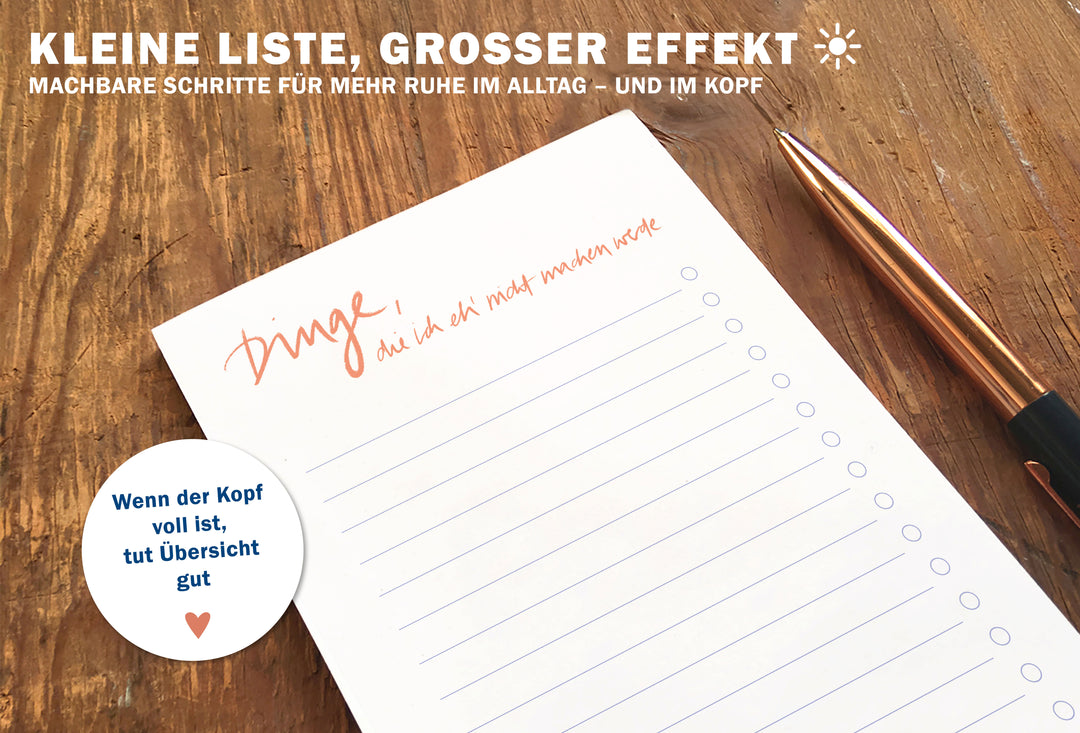 KLEINE LISTE, GROSSER EFFEKT
MACHBARE SCHRITTE FÜR MEHR RUHE IM ALLTAG – UND IM KOPF
Dinge,
die ich eh' nicht machen werde
Wenn der Kopf
voll ist,
tut Übersicht
gut